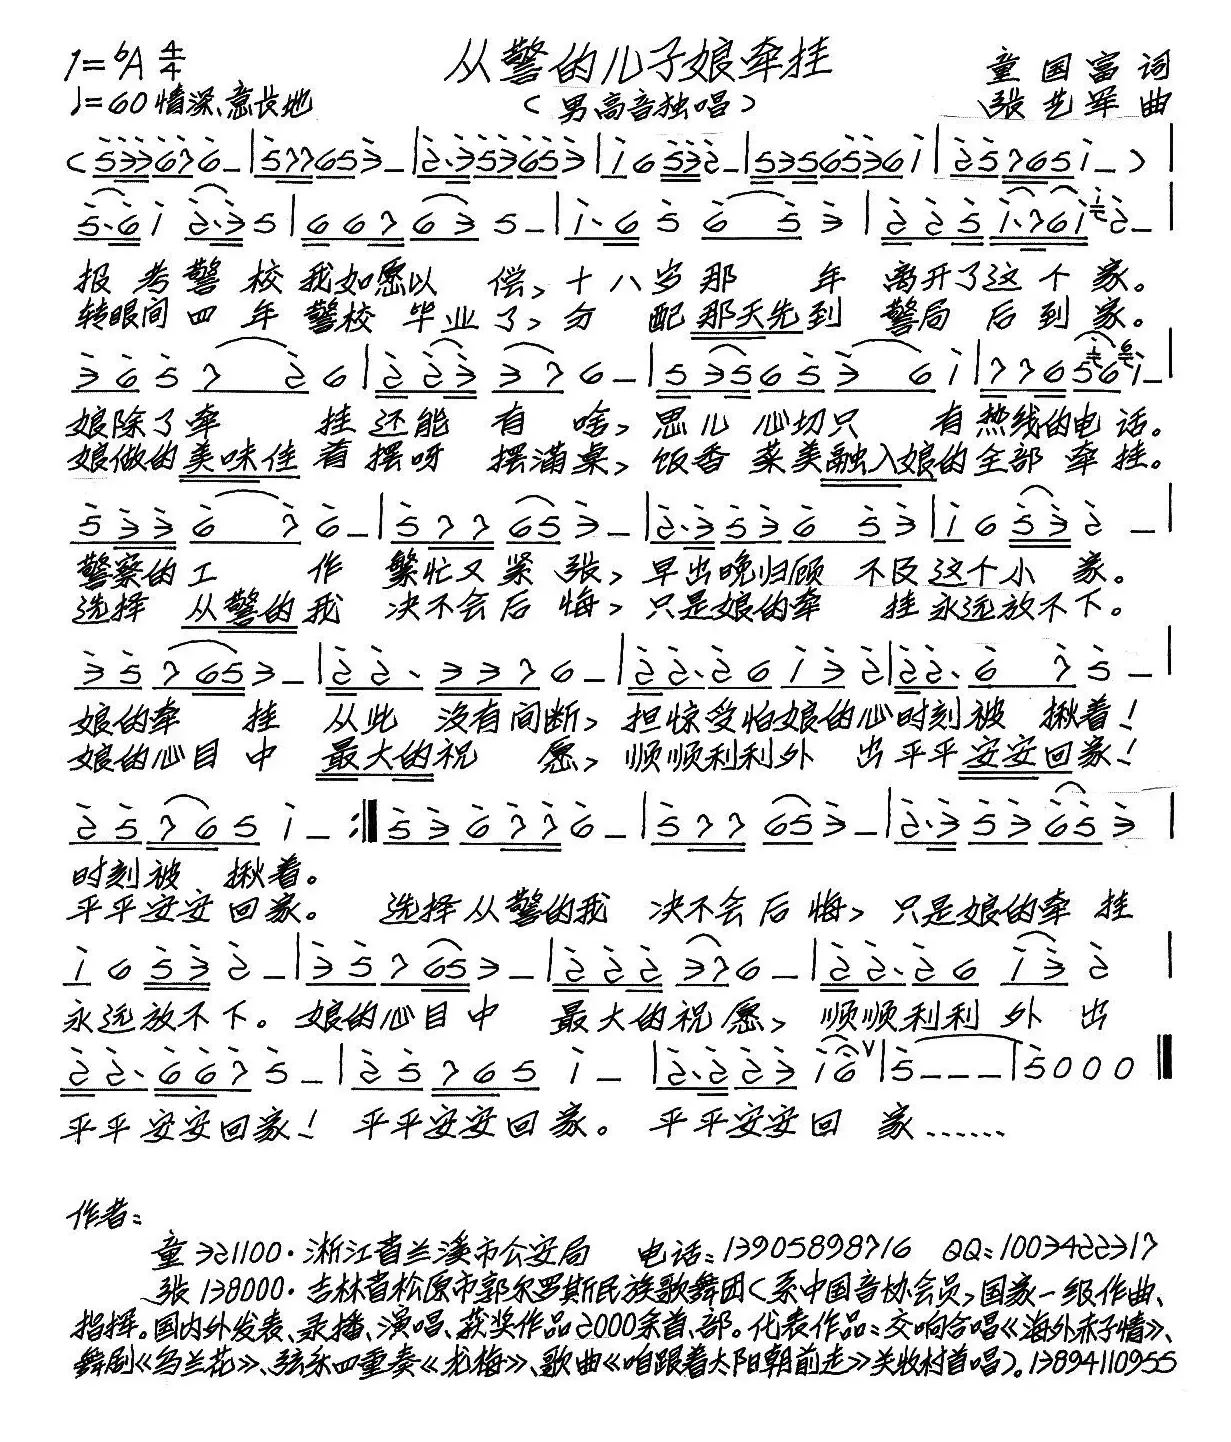 从警的儿子娘牵挂
1=♭A 4/4
童国富 词
♩=60 情深、意长地
（男高音独唱）
张艺军 曲
(5335676_|577653_|2·3535653|1 6 5 3 2_|5356536 1|2 5 7 6 5 1_)|
5·6 1 2·3 5|6 6 7 6 3 5_|1·6 5 6 5 3|2 2 5 1·7 6 1 2_|
报考警校我如愿以偿，十八岁那年离开了这个家。
转眼间四年警校毕业了，分配那天先到警局后到家。
3 6 5 7 2 6|2 2 3 3 7 6_|5 3 5 6 5 3 6 1|7 7 6 5 6 1_|
娘除了牵挂还能有啥，思儿心切只有热线的电话。
娘做的美味佳肴摆呀摆满桌，饭香菜美融入娘的全部牵挂。
5 3 3 6 7 6_|5 7 7 6 5 3_|2·3 5 3 6 5 3|1 6 5 3 2_|
警察的工作繁忙又紧张，早出晚归顾不及这个小家。
选择从警的我决不会后悔，只是娘的牵挂永远放不下。
3 5 7 6 5 3_|2 2·3 3 7 6_|2 2·2 6 1 3 2|2 2·6 7 5_|
娘的牵挂从此没有间断，担惊受怕娘的心时刻被揪着！
娘的心目中最大的祝愿，顺顺利利外出平平安安回家！
2 5 7 6 5 1_:‖5 3 6 7 7 6_|5 7 7 6 5 3_|2·3 5 3 6 5 3|
时刻被揪着。
平平安安回家。选择从警的我决不会后悔，只是娘的牵挂
1 6 5 3 2_|3 5 7 6 5 3_|2 2 2 3 7 6_|2 2·2 6 1 3 2|
永远放不下。娘的心目中最大的祝愿，顺顺利利外出
2 2·6 6 7 5_|2 5 7 6 5 1_|2·2 2 3 1 6 ∨|5___|5 0 0 0‖
平平安安回家！平平安安回家。平平安安回家……
作者：
童 321100·浙江省兰溪市公安局 电话：13905898716 QQ：1003422317
张 138000·吉林省松原市郭尔罗斯民族歌舞团（系中国音协会员，国家一级作曲、
指挥。国内外发表、录播、演唱、获奖作品2000余首、部。代表作品：交响合唱《海外赤子情》、
舞剧《乌兰花》、弦乐四重奏《龙梅》、歌曲《咱跟着太阳朝前走》关牧村首唱）。13894110955